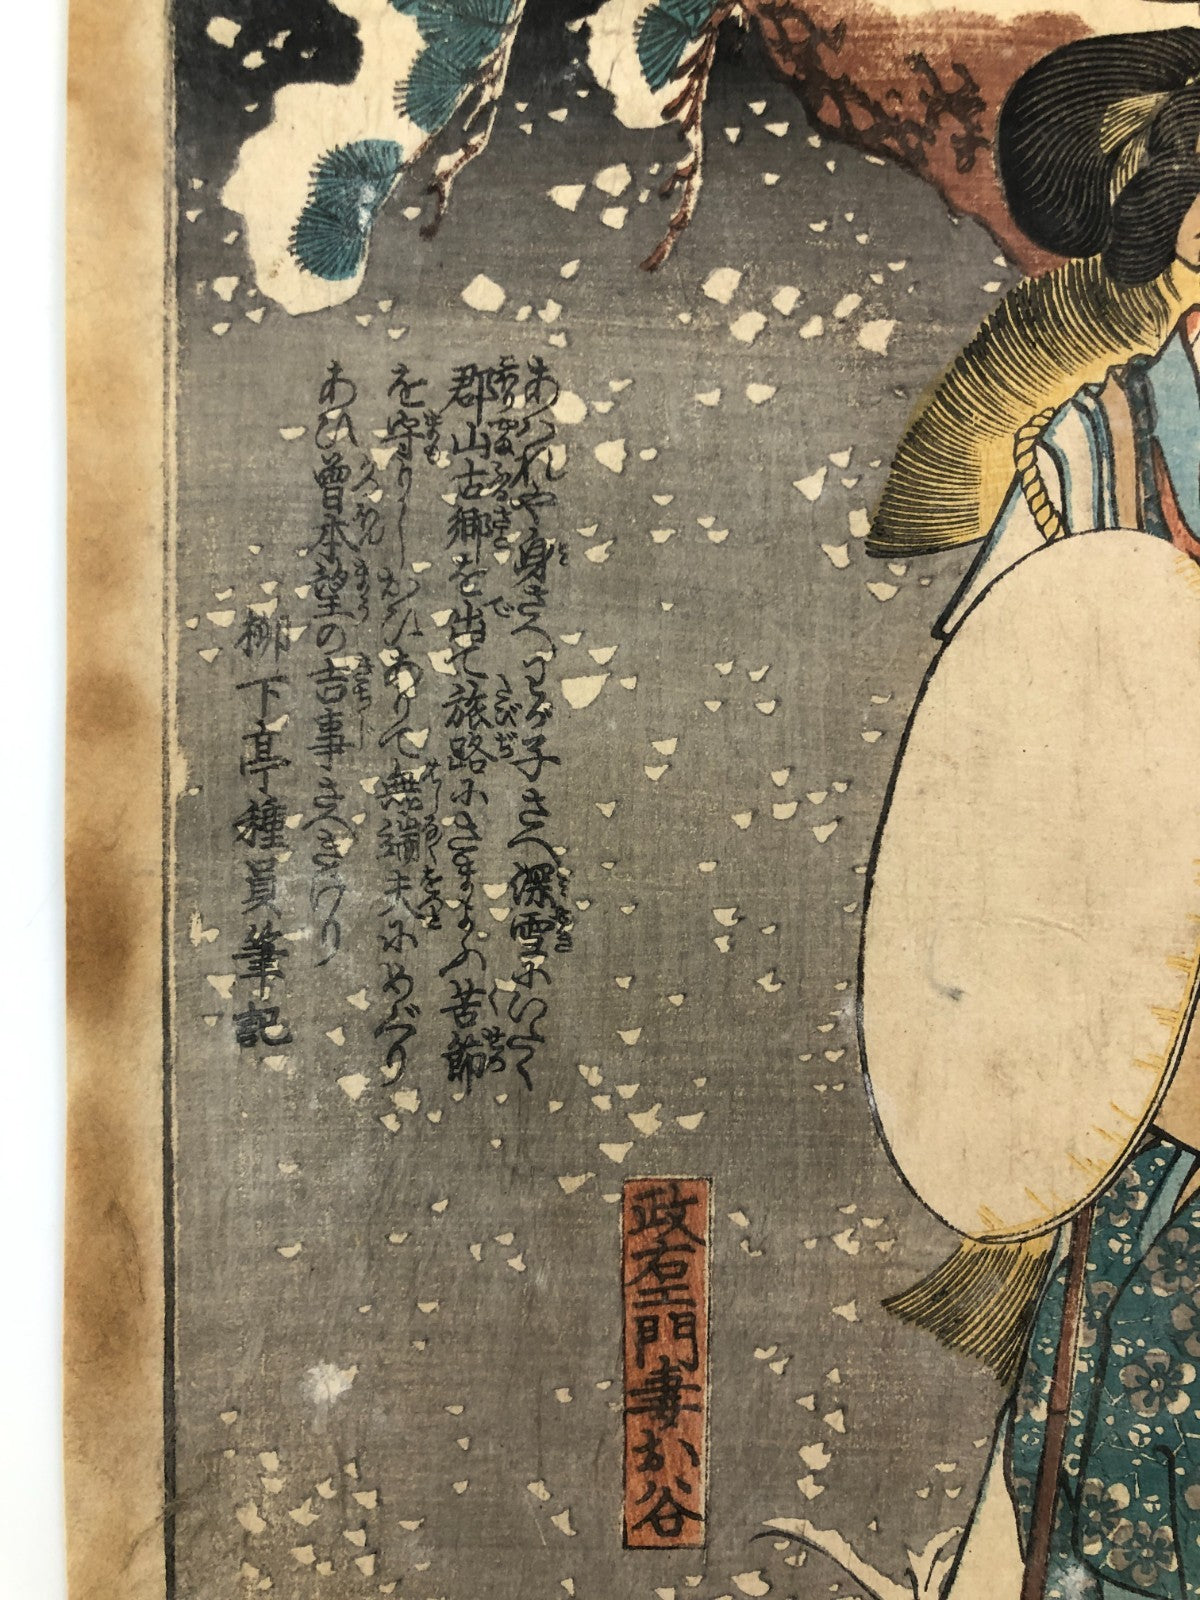 あはれや身さへわが子さへ深雪にいたく
郡山古郷を出て旅路にさまよふ苦節
を守りし
ありて無端夫にめぐり
あひ曾承望の吉事さへきけり
柳下亭種員筆記
政右エ門妻お谷